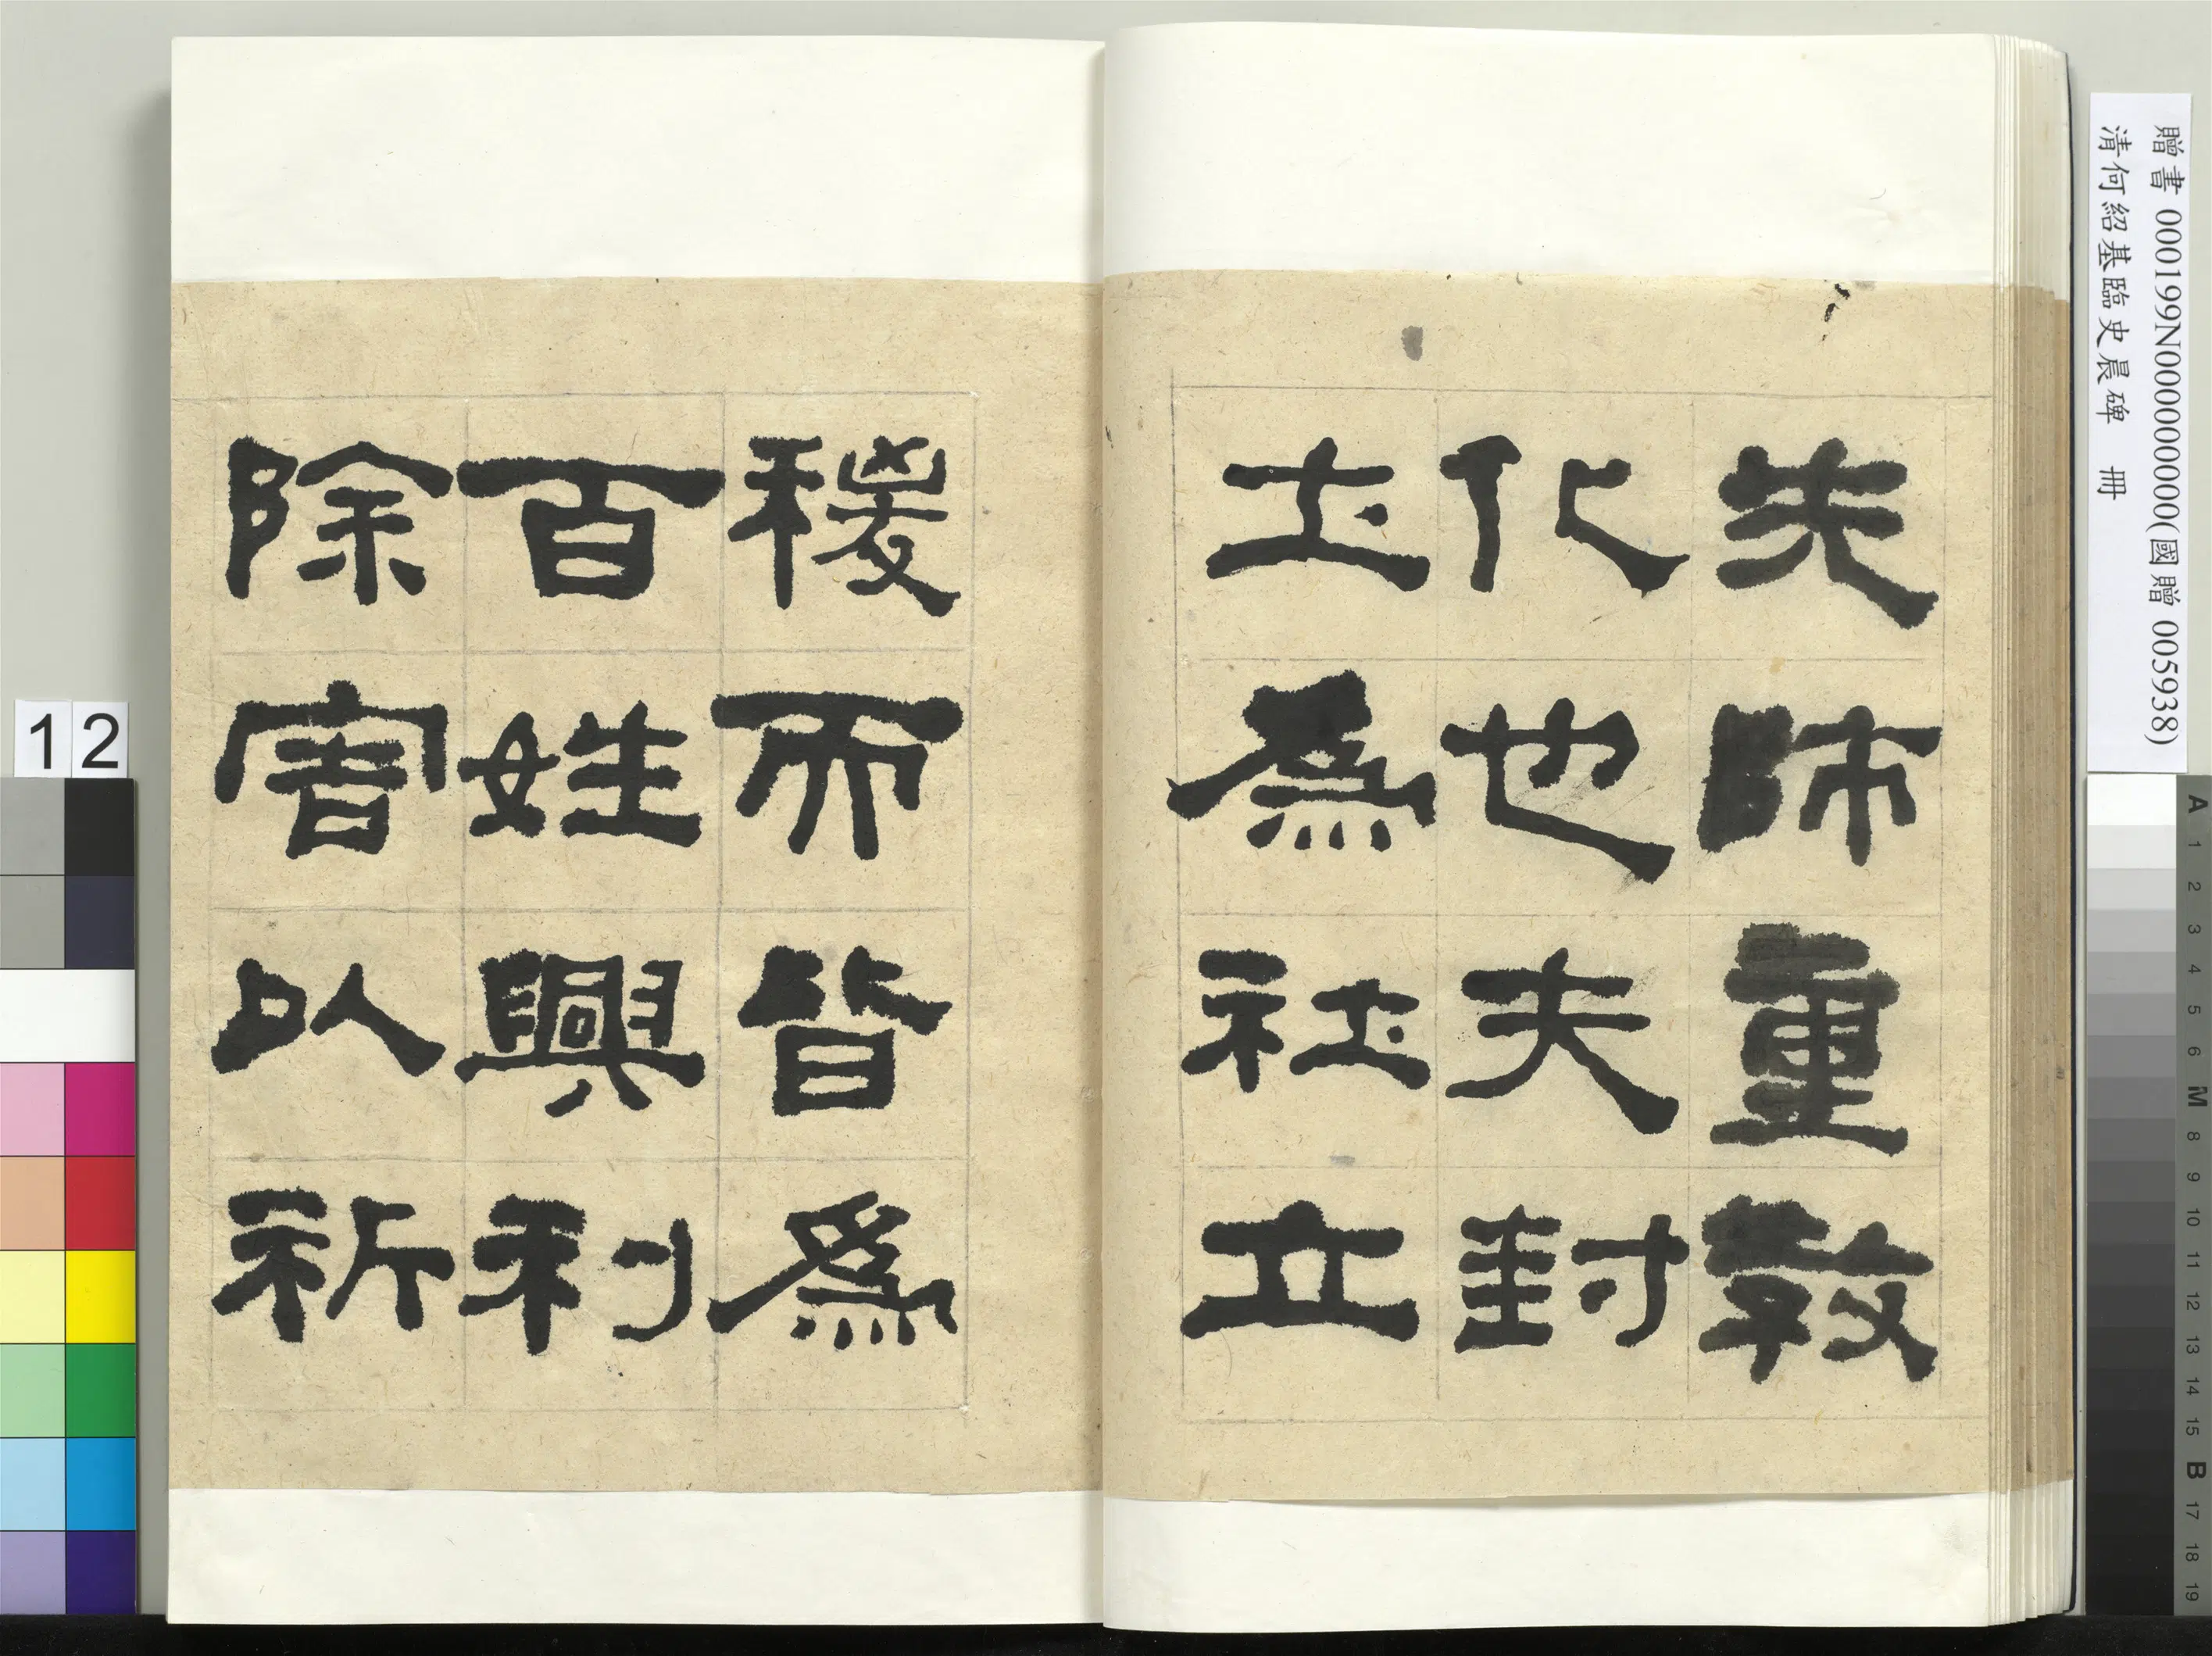 先師重教
化也夫封
土為社立
稷而皆為
百姓興利
除害以祈
贈書 000199N000000000(國贈 005938)
清何紹基臨史晨碑 冊
12
A 1 2 3 4 5 6 M 8 9 10 11 12 13 14 15 B 17 18 19